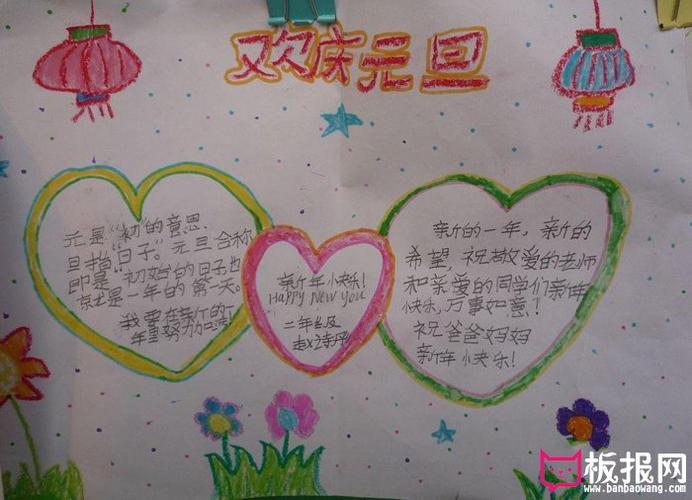 欢庆元旦
元是“初”的意思，
旦指“日子”。元旦合称
即是“初始的日子也
就是一年的第一天。
我要在新的一
年里努力加油！
新年快乐！
Happy New You
二年级
赵诗
新的一年，新的
希望，祝敬爱的老师
和亲爱的同学们新年
快乐，万事如意！
祝爸爸妈妈
新年快乐！
板报网
www.banbaowang.com